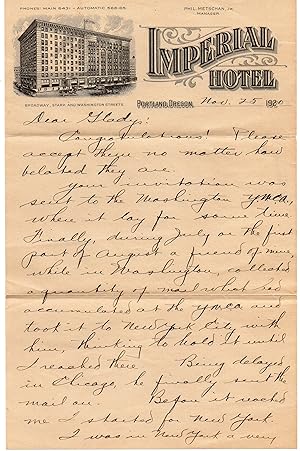 PHONES: MAIN 5431 - AUTOMATIC 568-05
PHIL METSCHAN, JR.
MANAGER
IMPERIAL
HOTEL
BROADWAY, STARK AND WASHINGTON STREETS
PORTLAND, OREGON. Nov. 25 1920
Dear Gladys:
Congratulations! Please
accept them no matter how
belated they are.
Your invitation was
sent to the Washington YMCA,
where it lay for some time.
Finally, during July or the first
part of August a friend of mine,
while in Washington, collected
a quantity of mail what had
accumulated at the YMCA and
took it to New York City with
him, thinking to hold it until
I reached there. Being delayed
in Chicago, he finally sent the
mail on. Before it reached
me I started for New York.
I was in New York a very